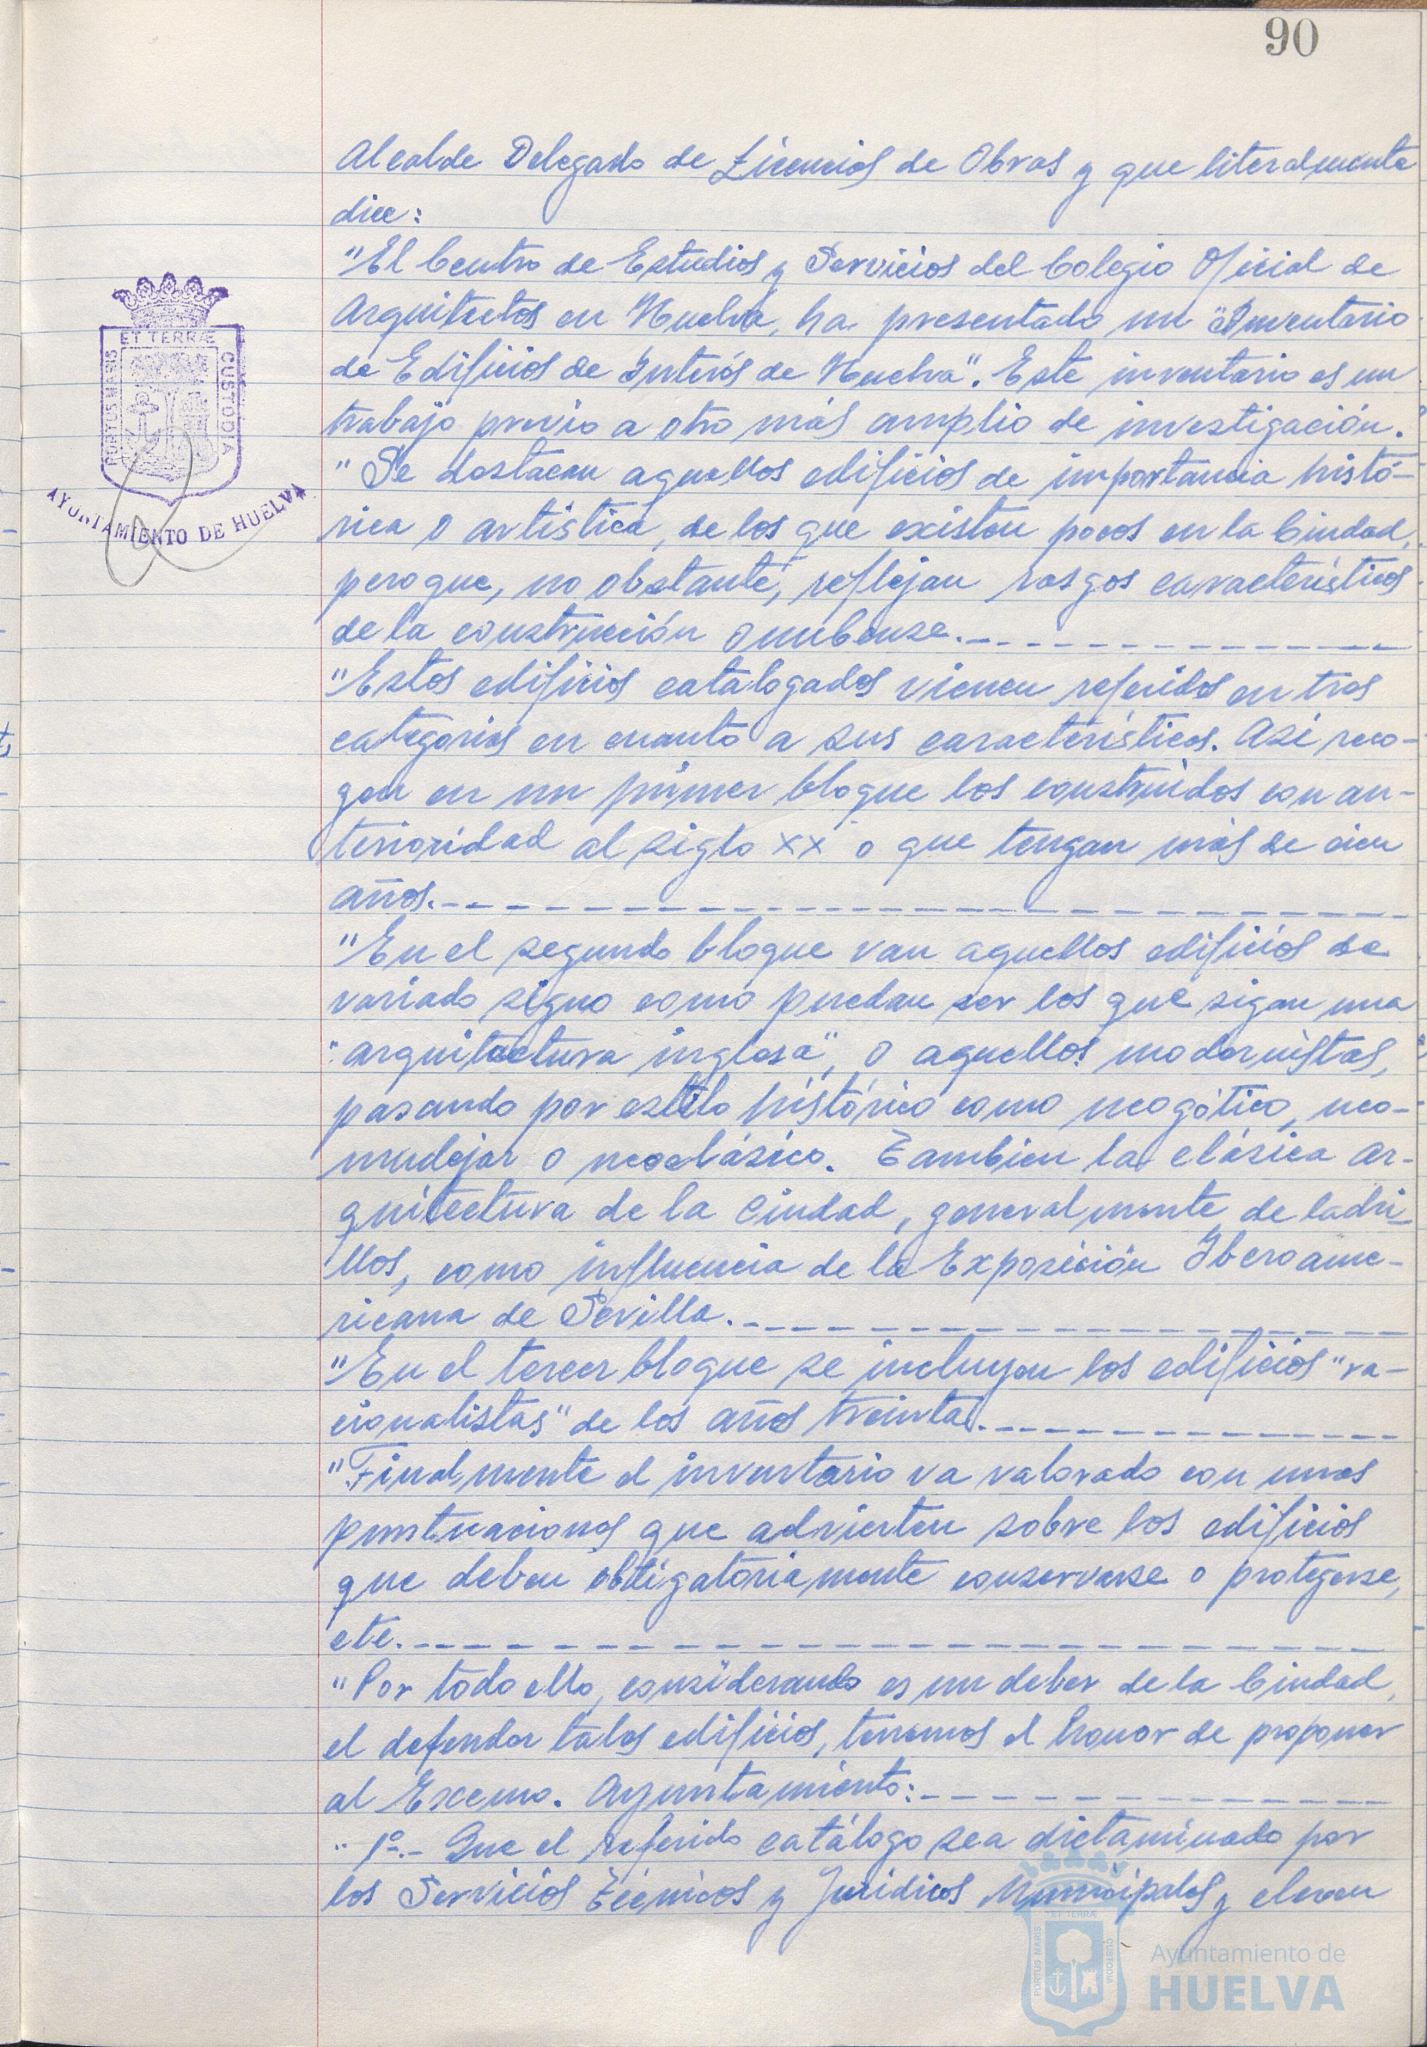 90
Alcalde Delegado de Licencias de Obras y que literalmente
dice:
"El Centro de Estudios y Servicios del Colegio Oficial de
Arquitectos en Huelva, ha presentado un "Inventario
de Edificios de Interés de Huelva". Este inventario es un
trabajo previo a otro más amplio de investigación.
"Se destacan aquellos edificios de importancia histó-
rica o artística, de los que existen pocos en la Ciudad,
pero que, no obstante, reflejan rasgos característicos
de la construcción onubense.
"Estos edificios catalogados vienen referidos en tres
categorías en cuanto a sus características. Así reco-
gen en un primer bloque los construidos con an-
terioridad al siglo XX o que tengan más de cien
años.
"En el segundo bloque van aquellos edificios de
variado signo como puedan ser los que sigan una
"arquitectura inglesa", o aquellos modernistas,
pasando por estilo histórico como neogótico, neo-
mudejar o neoclásico. Tambien la clásica ar-
quitectura de la Ciudad, generalmente de ladri-
llos, como influencia de la Exposición Iberoame-
ricana de Sevilla.
"En el tercer bloque se incluyen los edificios "ra-
cionalistas" de los años treinta.
"Finalmente el inventario va valorado con unas
puntuaciones que advierten sobre los edificios
que deben obligatoriamente conservarse o protegerse,
etc.
"Por todo ello, considerando es un deber de la Ciudad,
el defender tales edificios, tenemos el honor de proponer
al Excmo. Ayuntamiento:
"1º.- Que el referido catálogo sea dictaminado por
los Servicios Técnicos y Jurídicos Municipales y eleven
PORTUS MARIS ET TERRÆ CUSTODIA
AYUNTAMIENTO DE HUELVA
PORTUS MARIS ET TERRÆ CUSTODIA
Ayuntamiento de
HUELVA